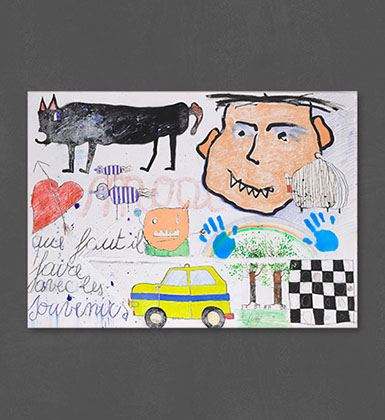 que faut il
faire
avec les
souvenirs